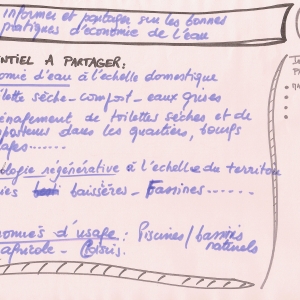 informer et partager sur les bonnes
pratiques d'économie de l'eau
NTIEL A PARTAGER:
omie d'eau à l'échelle domestique
ilette sèche - compost - eaux grises
énagement de toilettes sèches et de
posteurs dans les quartiers, bourgs
ages......
ologie régénérative à l'échelle du territoi
ies baissières - Fascines......
nomies d'usage: Piscines/bassins
naturels
agricole -